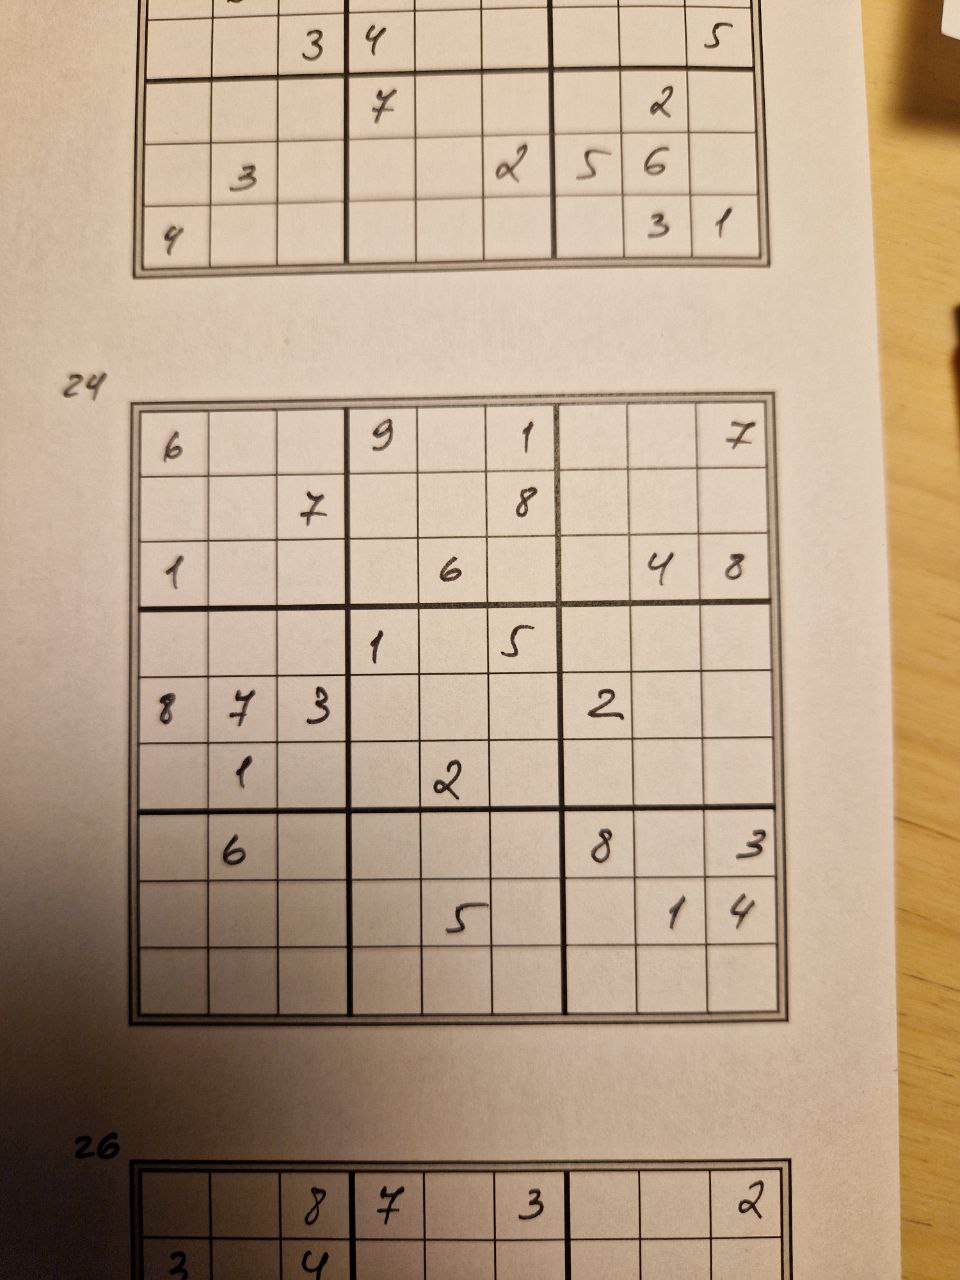 3 4 5
7 2
3 2 5 6
4 3 1
24
6 9 1 7
7 8
1 6 4 8
1 5
8 7 3 2
1 2
6 8 3
5 1 4
26
8 7 3 2
3 4